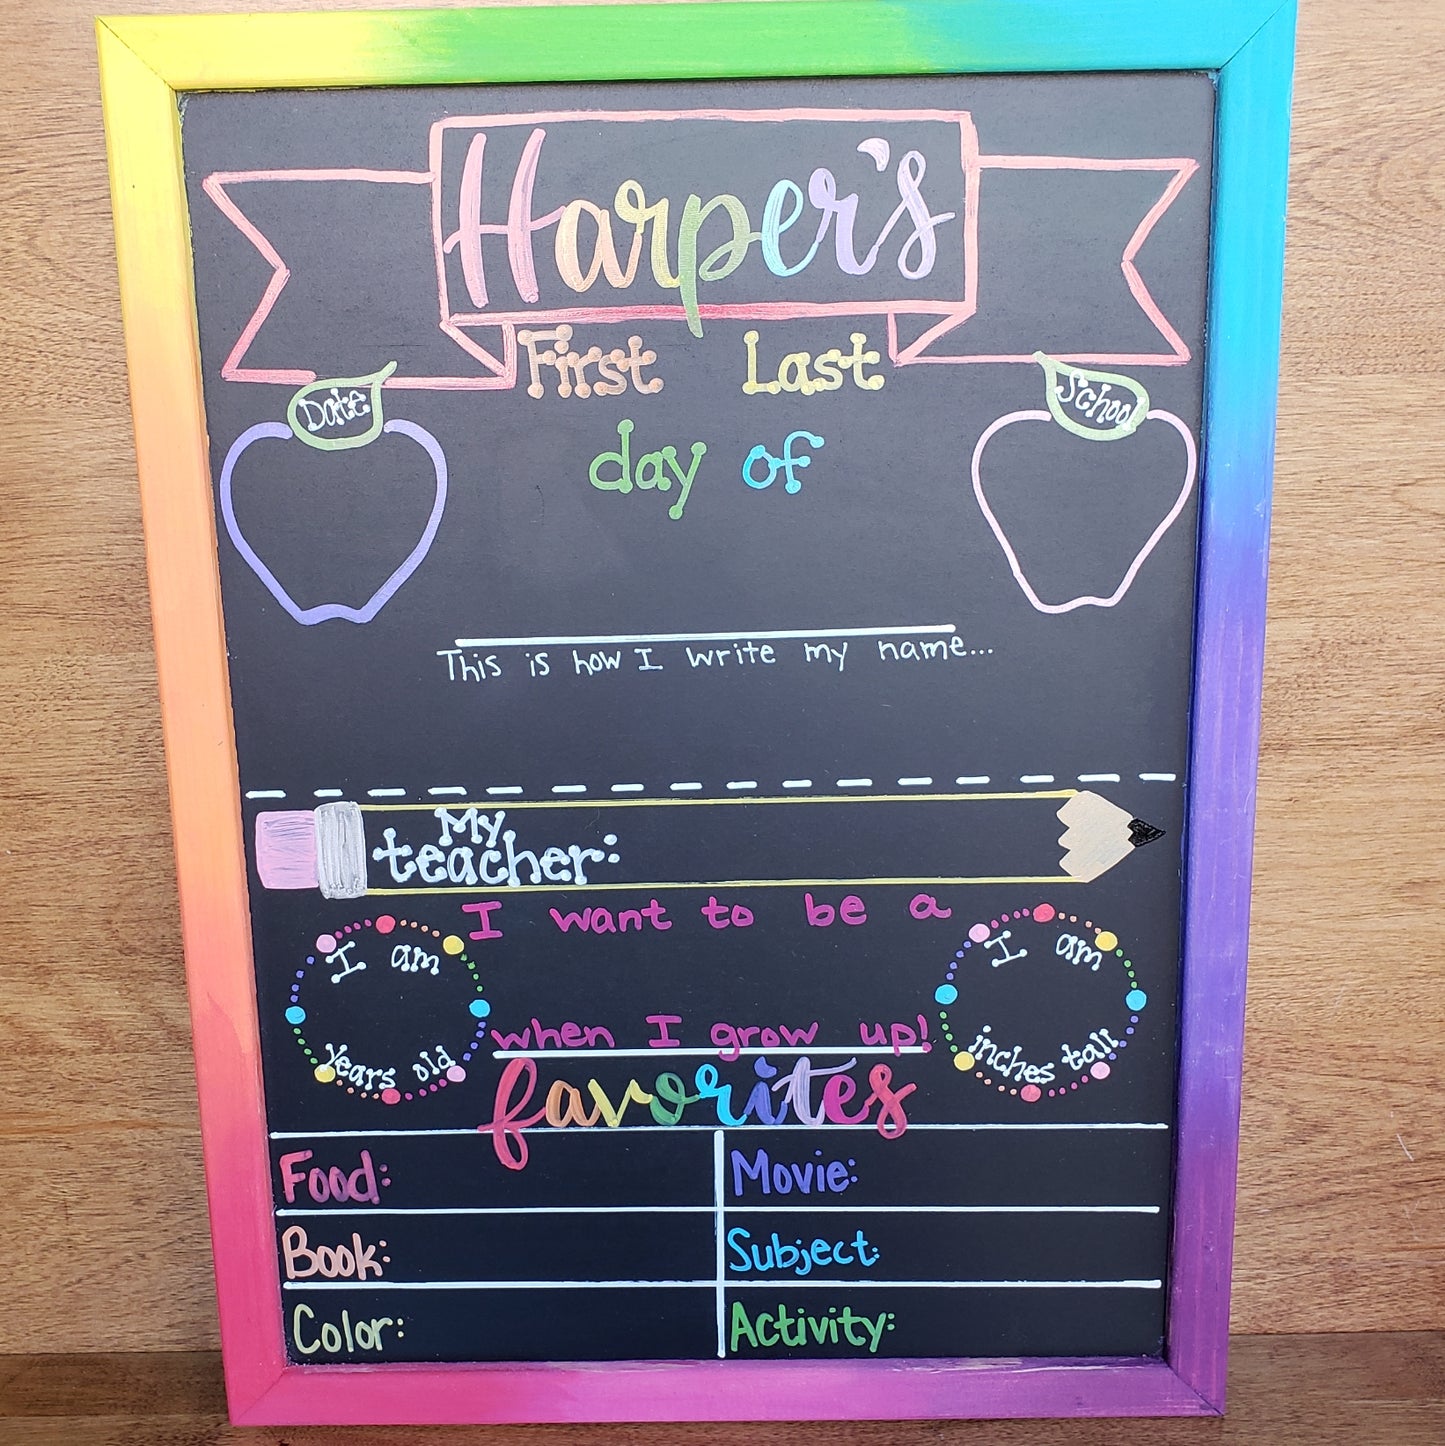 Harper's
First Last
Date
School
day of
This is how I write my name...
My
teacher:
I want to be a
I am
years old
I am
inches tall
when I grow up!
favorites
Food:
Movie:
Book:
Subject:
Color:
Activity: